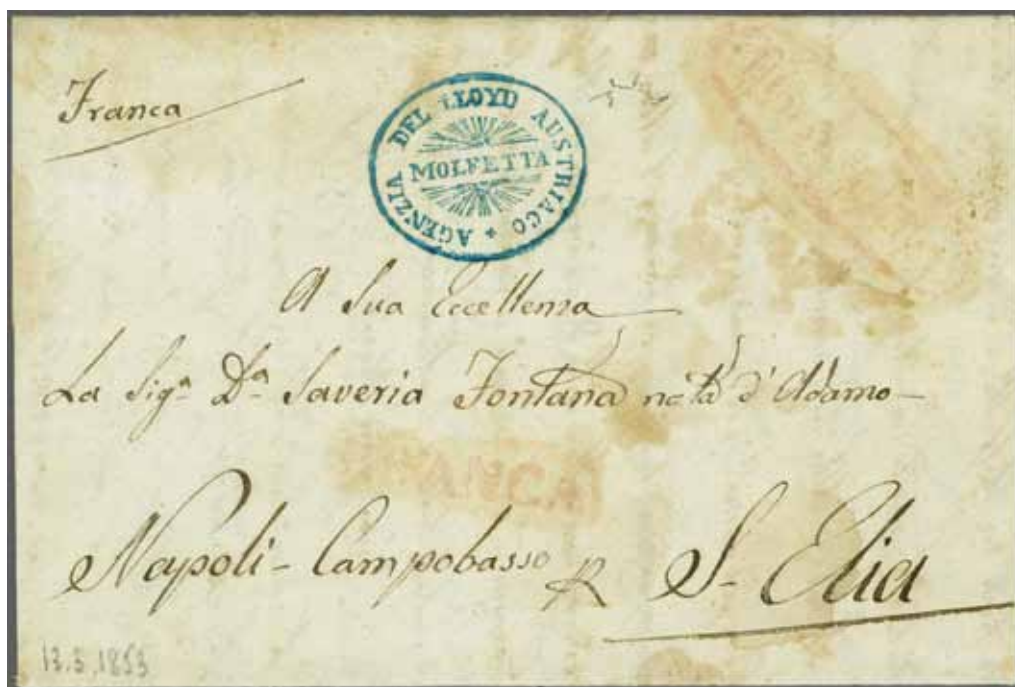 Franca
AGENZIA DEL LLOYD AUSTRIACO
MOLFETTA
A Sua Eccellenza
La Sigª Dª Saveria Fontana nata d'Adamo
FRANCA
Napoli - Campobasso
S. Elia
13.3.1853